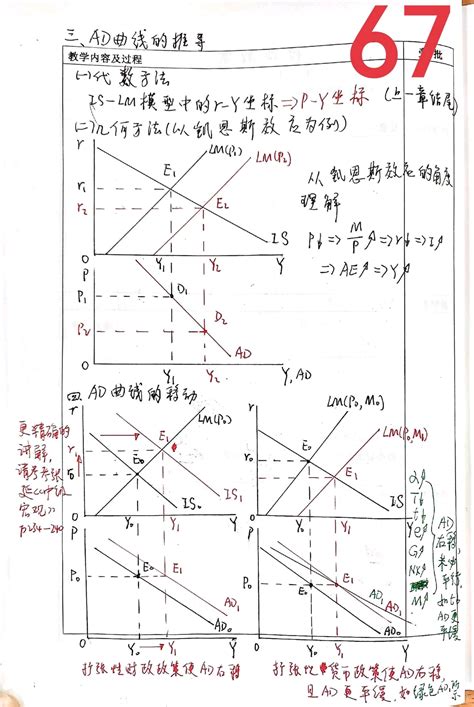 67
三、AD曲线的推导
教学内容及过程
批
(一)代数方法
IS-LM模型中的r-Y坐标⇒P-Y坐标 (上一章结尾)
(二)几何方法(以凯恩斯效应为例)
r
LM(P₁)
LM(P₂)
E₁
r₁
r₂
E₂
IS
0
Y₁
Y₂
Y
从凯恩斯效应的角度
理解
P↓⇒M/P↑⇒r↓⇒I↑
⇒AE↑⇒Y↑
P
P₁
D₁
P₂
D₂
AD
Y₁
Y₂
Y, AD
四、AD曲线的移动
r
LM(P₀)
E₁
r₁
E₀
r₀
IS₁
IS₀
0
Y₀
Y₁
Y
r
LM(P₀, M₀)
LM(P₀, M₁)
E₀
r₀
r₁
E₁
IS
0
Y₀
Y₁
Y
更精确的
讲解,
请参考张
延《中级
宏观》
P234-240
P
P₀
E₀
E₁
AD₁
AD₀
Y₀
Y₁
Y
P
P₀
E₀
E₁
AD₁
AD₁
AD₀
Y₀
Y₁
Y
α↑
T↓
t↓
e↑
G↑
NX↑
M↑
AD
右移,
平缓,
AD更
平缓
扩张性财政政策使AD右移
扩张性货币政策使AD右移,
且AD更平缓,如绿色AD₁所示